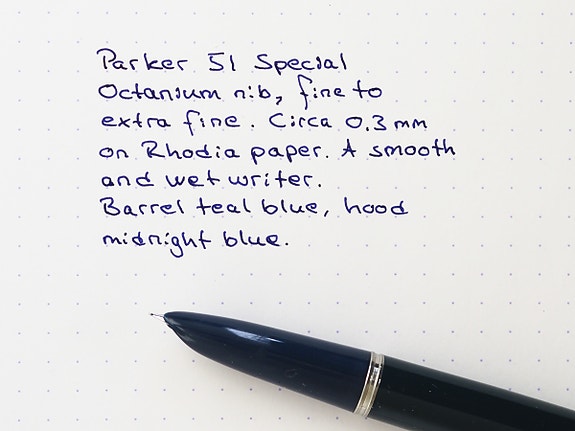 Parker 51 Special
Octanium nib, fine to
extra fine. Circa 0.3 mm
on Rhodia paper. A smooth
and wet writer.
Barrel teal blue, hood
midnight blue.